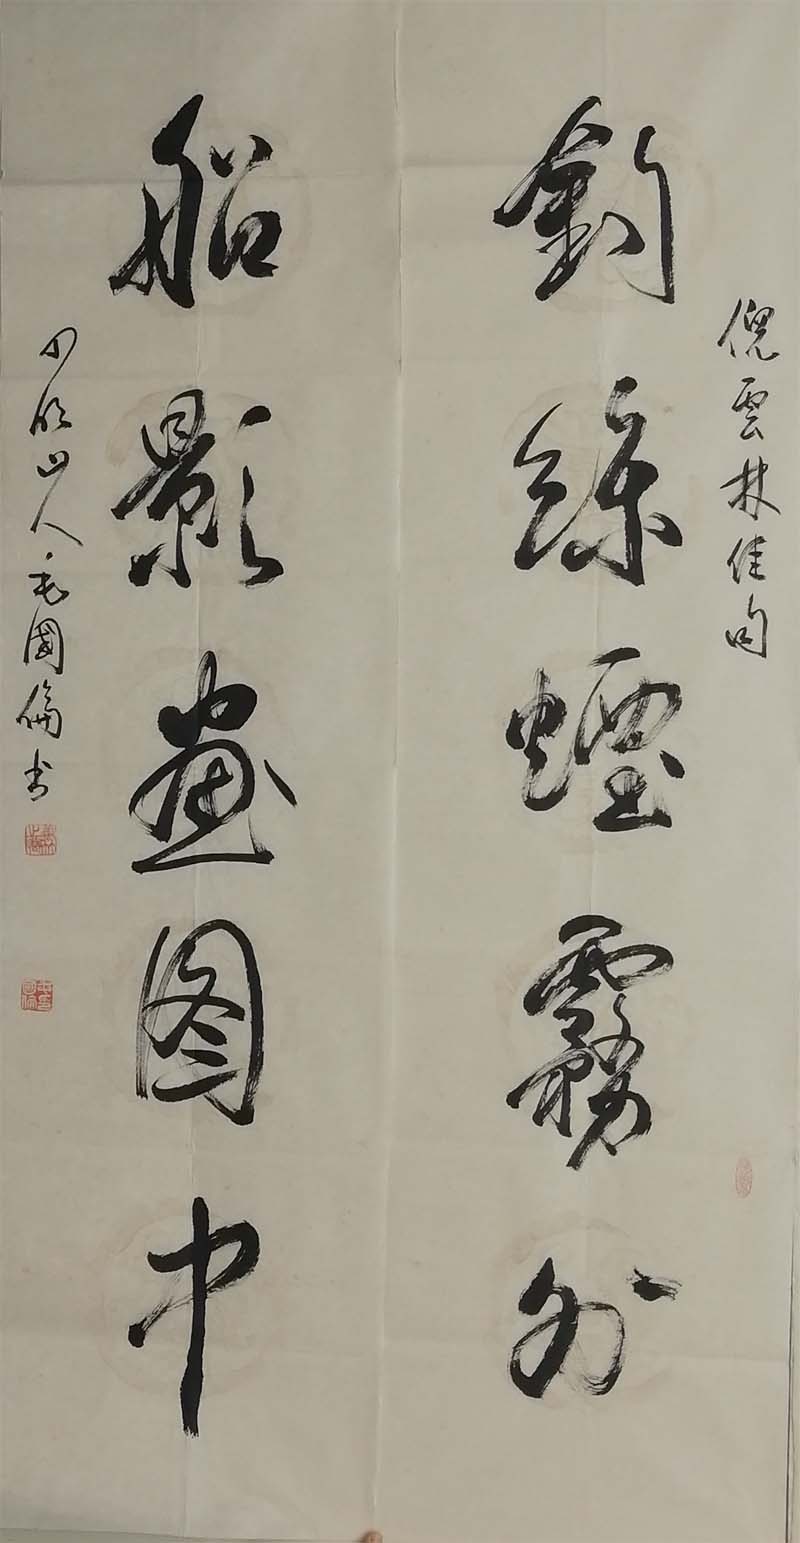 倪雲林佳句
釣絲煙霧外
船影畫图中
山人毛國倫书